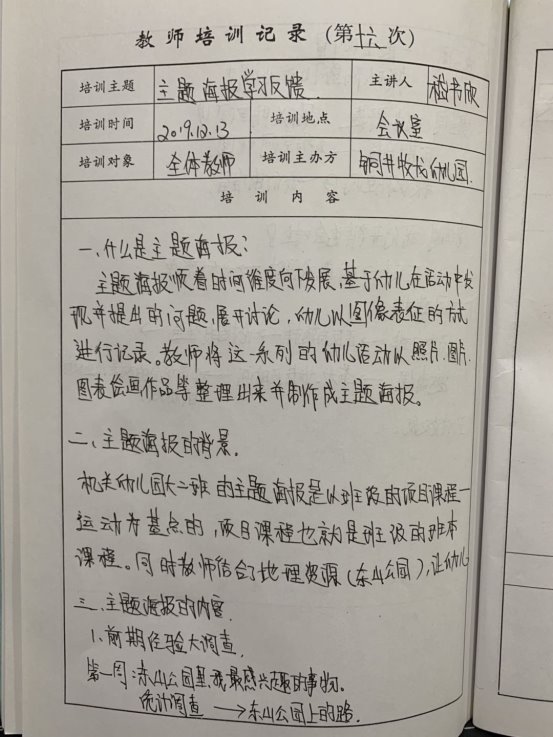 教师培训记录（第十六次）
培训主题 主题海报学习反馈. 主讲人 书欣
培训时间 2019.12.13 培训地点 会议室
培训对象 全体教师 培训主办方 铜井牧龙幼儿园.
培训内容
一.什么是主题海报?
主题海报顺着时间维度向下发展,基于幼儿在活动中发
现并提出的问题,展开讨论,幼儿以图像表征的方式
进行记录。教师将这一系列的幼儿活动以照片.图片.
图表绘画作品等整理出来并制作成主题海报。
二、主题海报的背景.
机关幼儿园大二班的主题海报是以班级的项目课程一
运动为基点的,项目课程也就是班级的班本
课程。同时教师结合了地理资源(东山公园),让幼儿
三.主题海报的内容.
1.前期经验大调查.
第一周:东山公园里我最感兴趣的事物。
统计调查→东山公园上的路.